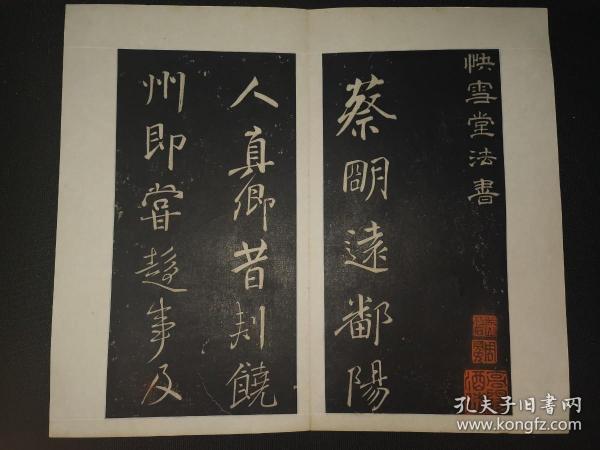 快雪堂法書
蔡明遠鄱陽
人真卿昔刺饒
州即嘗趨事及
孔夫子旧书网
www.kongfz.com